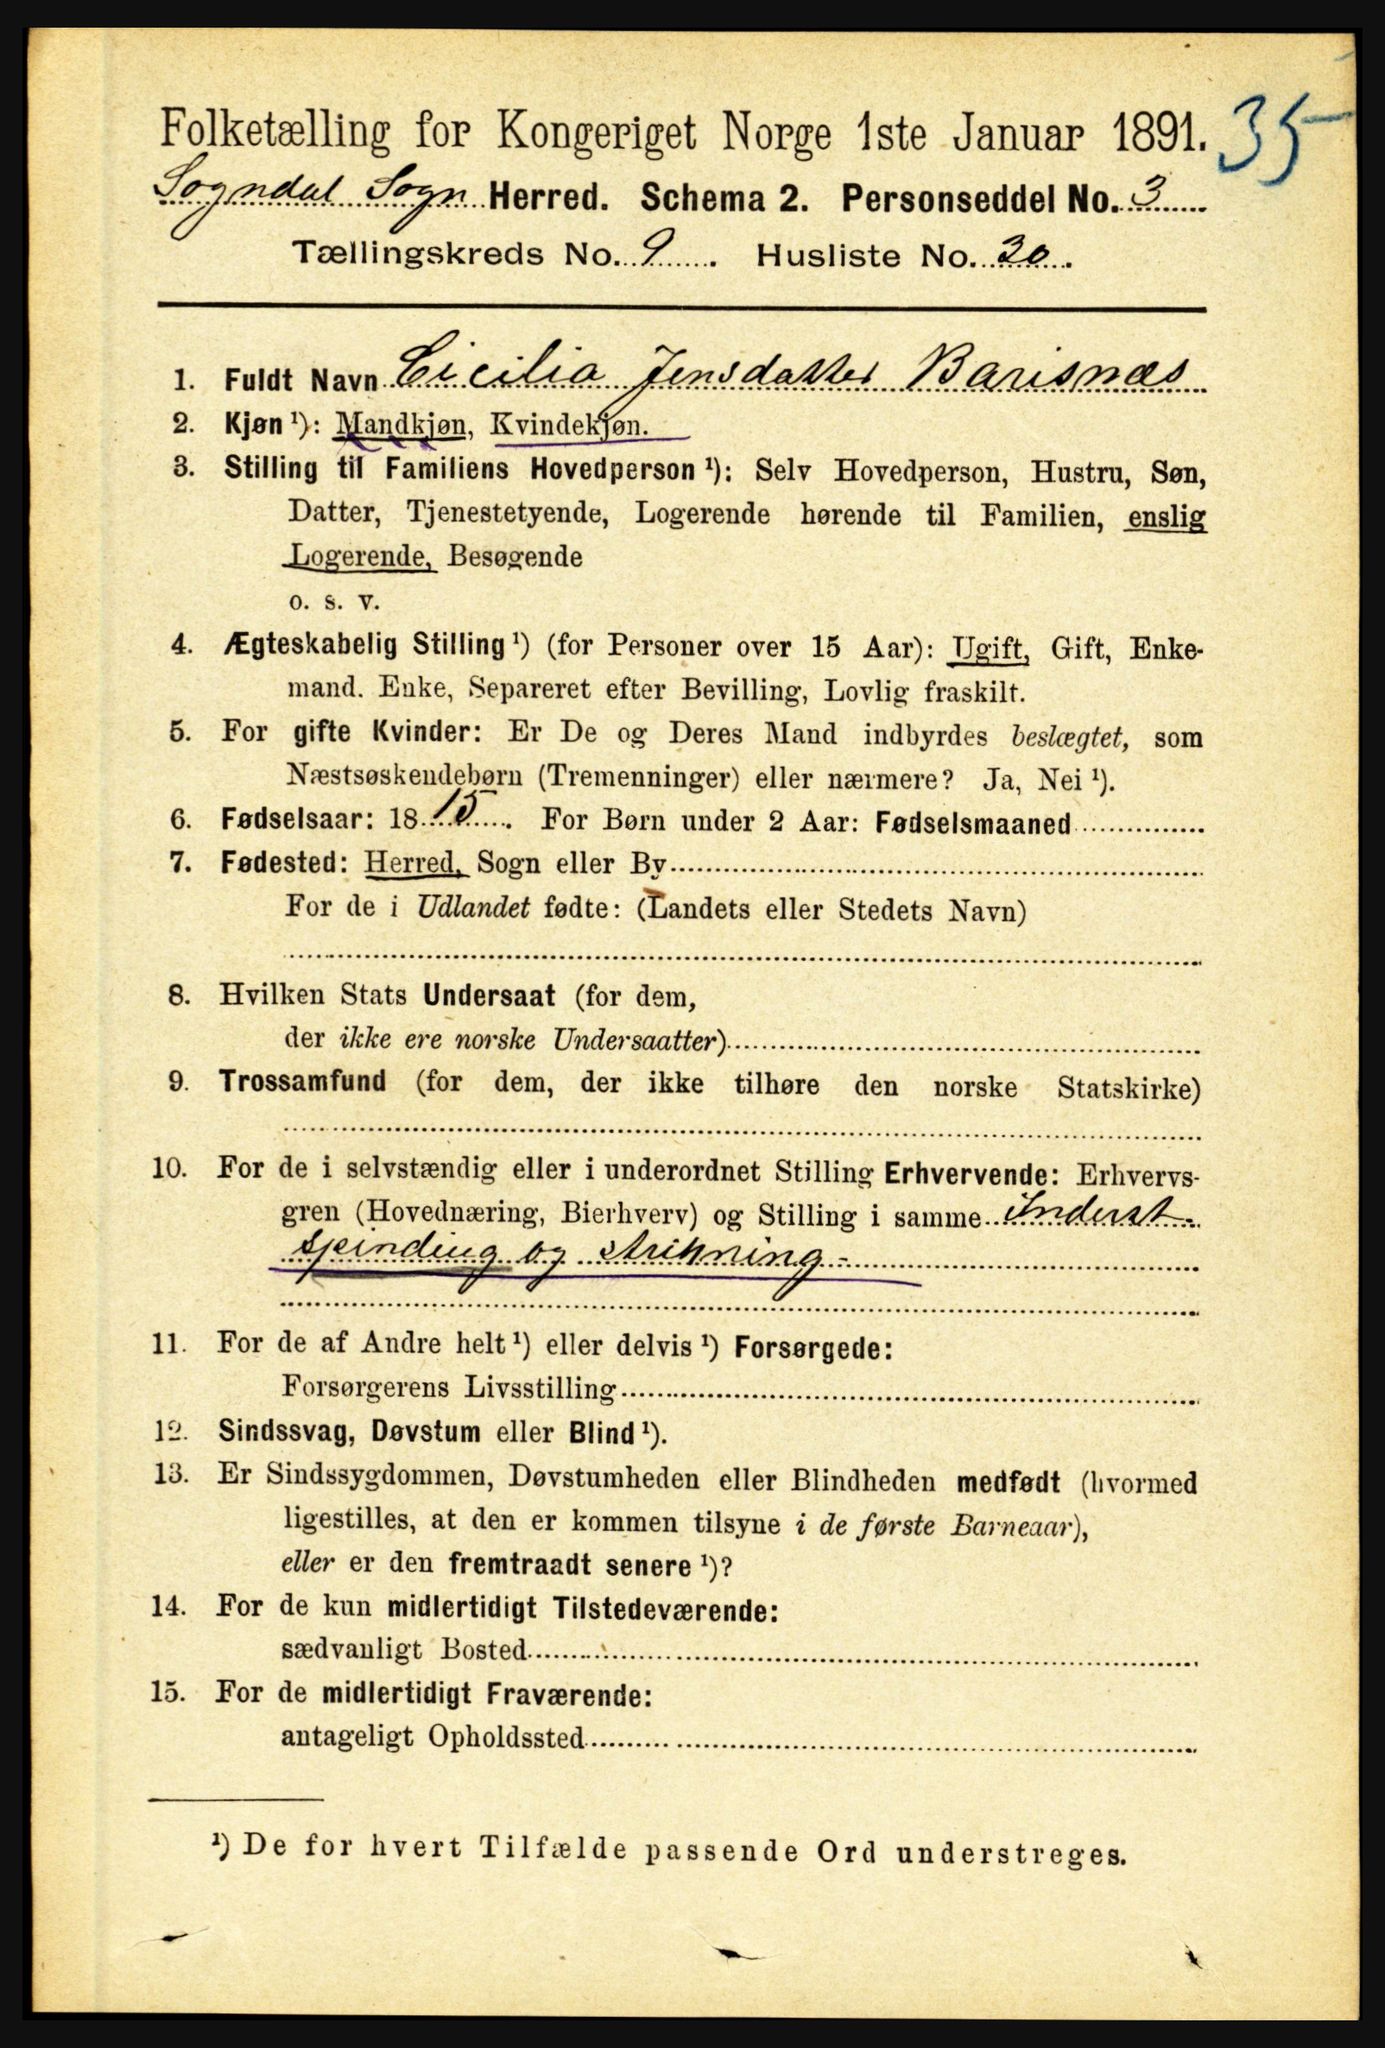 35
Folketælling for Kongeriget Norge 1ste Januar 1891.
Sogndal Sogn Herred. Schema 2. Personseddel No. 3
Tællingskreds No. 9. Husliste No. 30.
1. Fuldt Navn Cicilia Jensdatter Barisnæs
2. Kjøn ¹): Mandkjøn, Kvindekjøn.
3. Stilling til Familiens Hovedperson ¹): Selv Hovedperson, Hustru, Søn,
Datter, Tjenestetyende, Logerende hørende til Familien, enslig
Logerende, Besøgende
o. s. v.
4. Ægteskabelig Stilling ¹) (for Personer over 15 Aar): Ugift, Gift, Enke-
mand. Enke, Separeret efter Bevilling, Lovlig fraskilt.
5. For gifte Kvinder: Er De og Deres Mand indbyrdes beslægtet, som
Næstsøskendebørn (Tremenninger) eller nærmere? Ja, Nei ¹).
6. Fødselsaar: 1815. For Børn under 2 Aar: Fødselsmaaned
7. Fødested: Herred, Sogn eller By
For de i Udlandet fødte: (Landets eller Stedets Navn)
8. Hvilken Stats Undersaat (for dem,
der ikke ere norske Undersaatter)
9. Trossamfund (for dem, der ikke tilhøre den norske Statskirke)
10. For de i selvstændig eller i underordnet Stilling Erhvervende: Erhvervs-
gren (Hovednæring, Bierhverv) og Stilling i samme Inderst-
spinding og strikning-
11. For de af Andre helt ¹) eller delvis ¹) Forsørgede:
Forsørgerens Livsstilling
12. Sindssvag, Døvstum eller Blind ¹).
13. Er Sindssygdommen, Døvstumheden eller Blindheden medfødt (hvormed
ligestilles, at den er kommen tilsyne i de første Barneaar),
eller er den fremtraadt senere ¹)?
14. For de kun midlertidigt Tilstedeværende:
sædvanligt Bosted
15. For de midlertidigt Fraværende:
antageligt Opholdssted
¹) De for hvert Tilfælde passende Ord understreges.